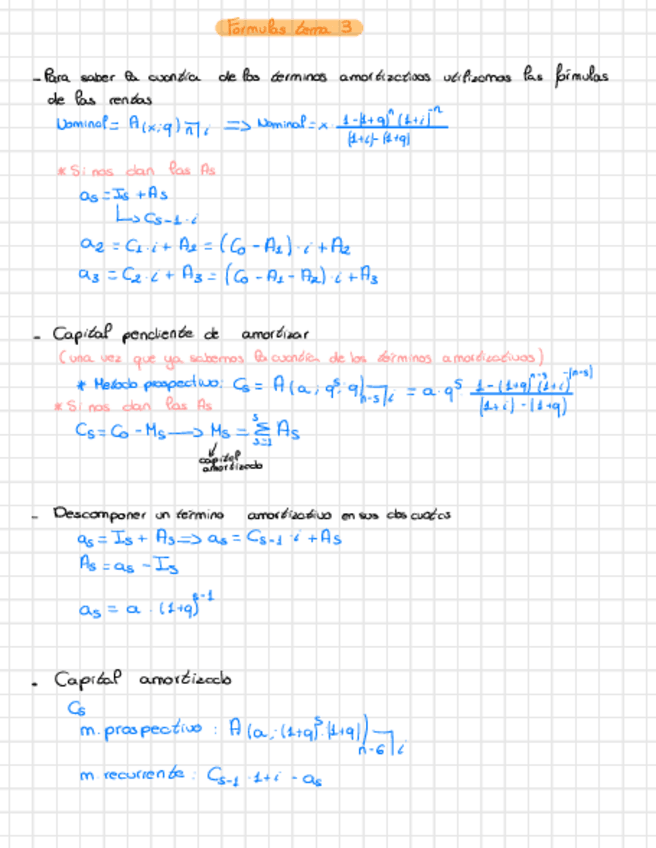 Fórmulas tema 3
- Para saber la cuantía de los terminos amortizativos utilizamos las fórmulas
de las rentas
Nominal = A(x;q) n┐i => Nominal = x · (1-(1+q)^n (1+i)^-n) / ((1+i)-(1+q))
* Si nos dan las As
as = Is + As
↳ Cs-1 · i
a2 = C1 · i + A2 = (C0 - A1) · i + A2
a3 = C2 · i + A3 = (C0 - A1 - A2) · i + A3
- Capital pendiente de amortizar
(una vez que ya sabemos la cuantía de los términos amortizativos)
* Metodo prospectivo: Cs = A(a; q^s; q) n-s┐i = a · q^s (1-(1+q)^n-s (1+i)^-(n-s)) / ((1+i)-(1+q))
* Si nos dan las As
Cs = C0 - Ms → Ms = Σ^s s=1 As
↓
capital
amortizado
- Descomponer un termino amortizativo en sus dos cuotas
as = Is + As => as = Cs-1 · i + As
As = as - Is
as = a · (1+q)^s-1
- Capital amortizado
Cs
m. prospectivo : A(a; (1+q)^s; (1+q)) n-6┐i
m. recurrente : Cs-1 · 1+i - as